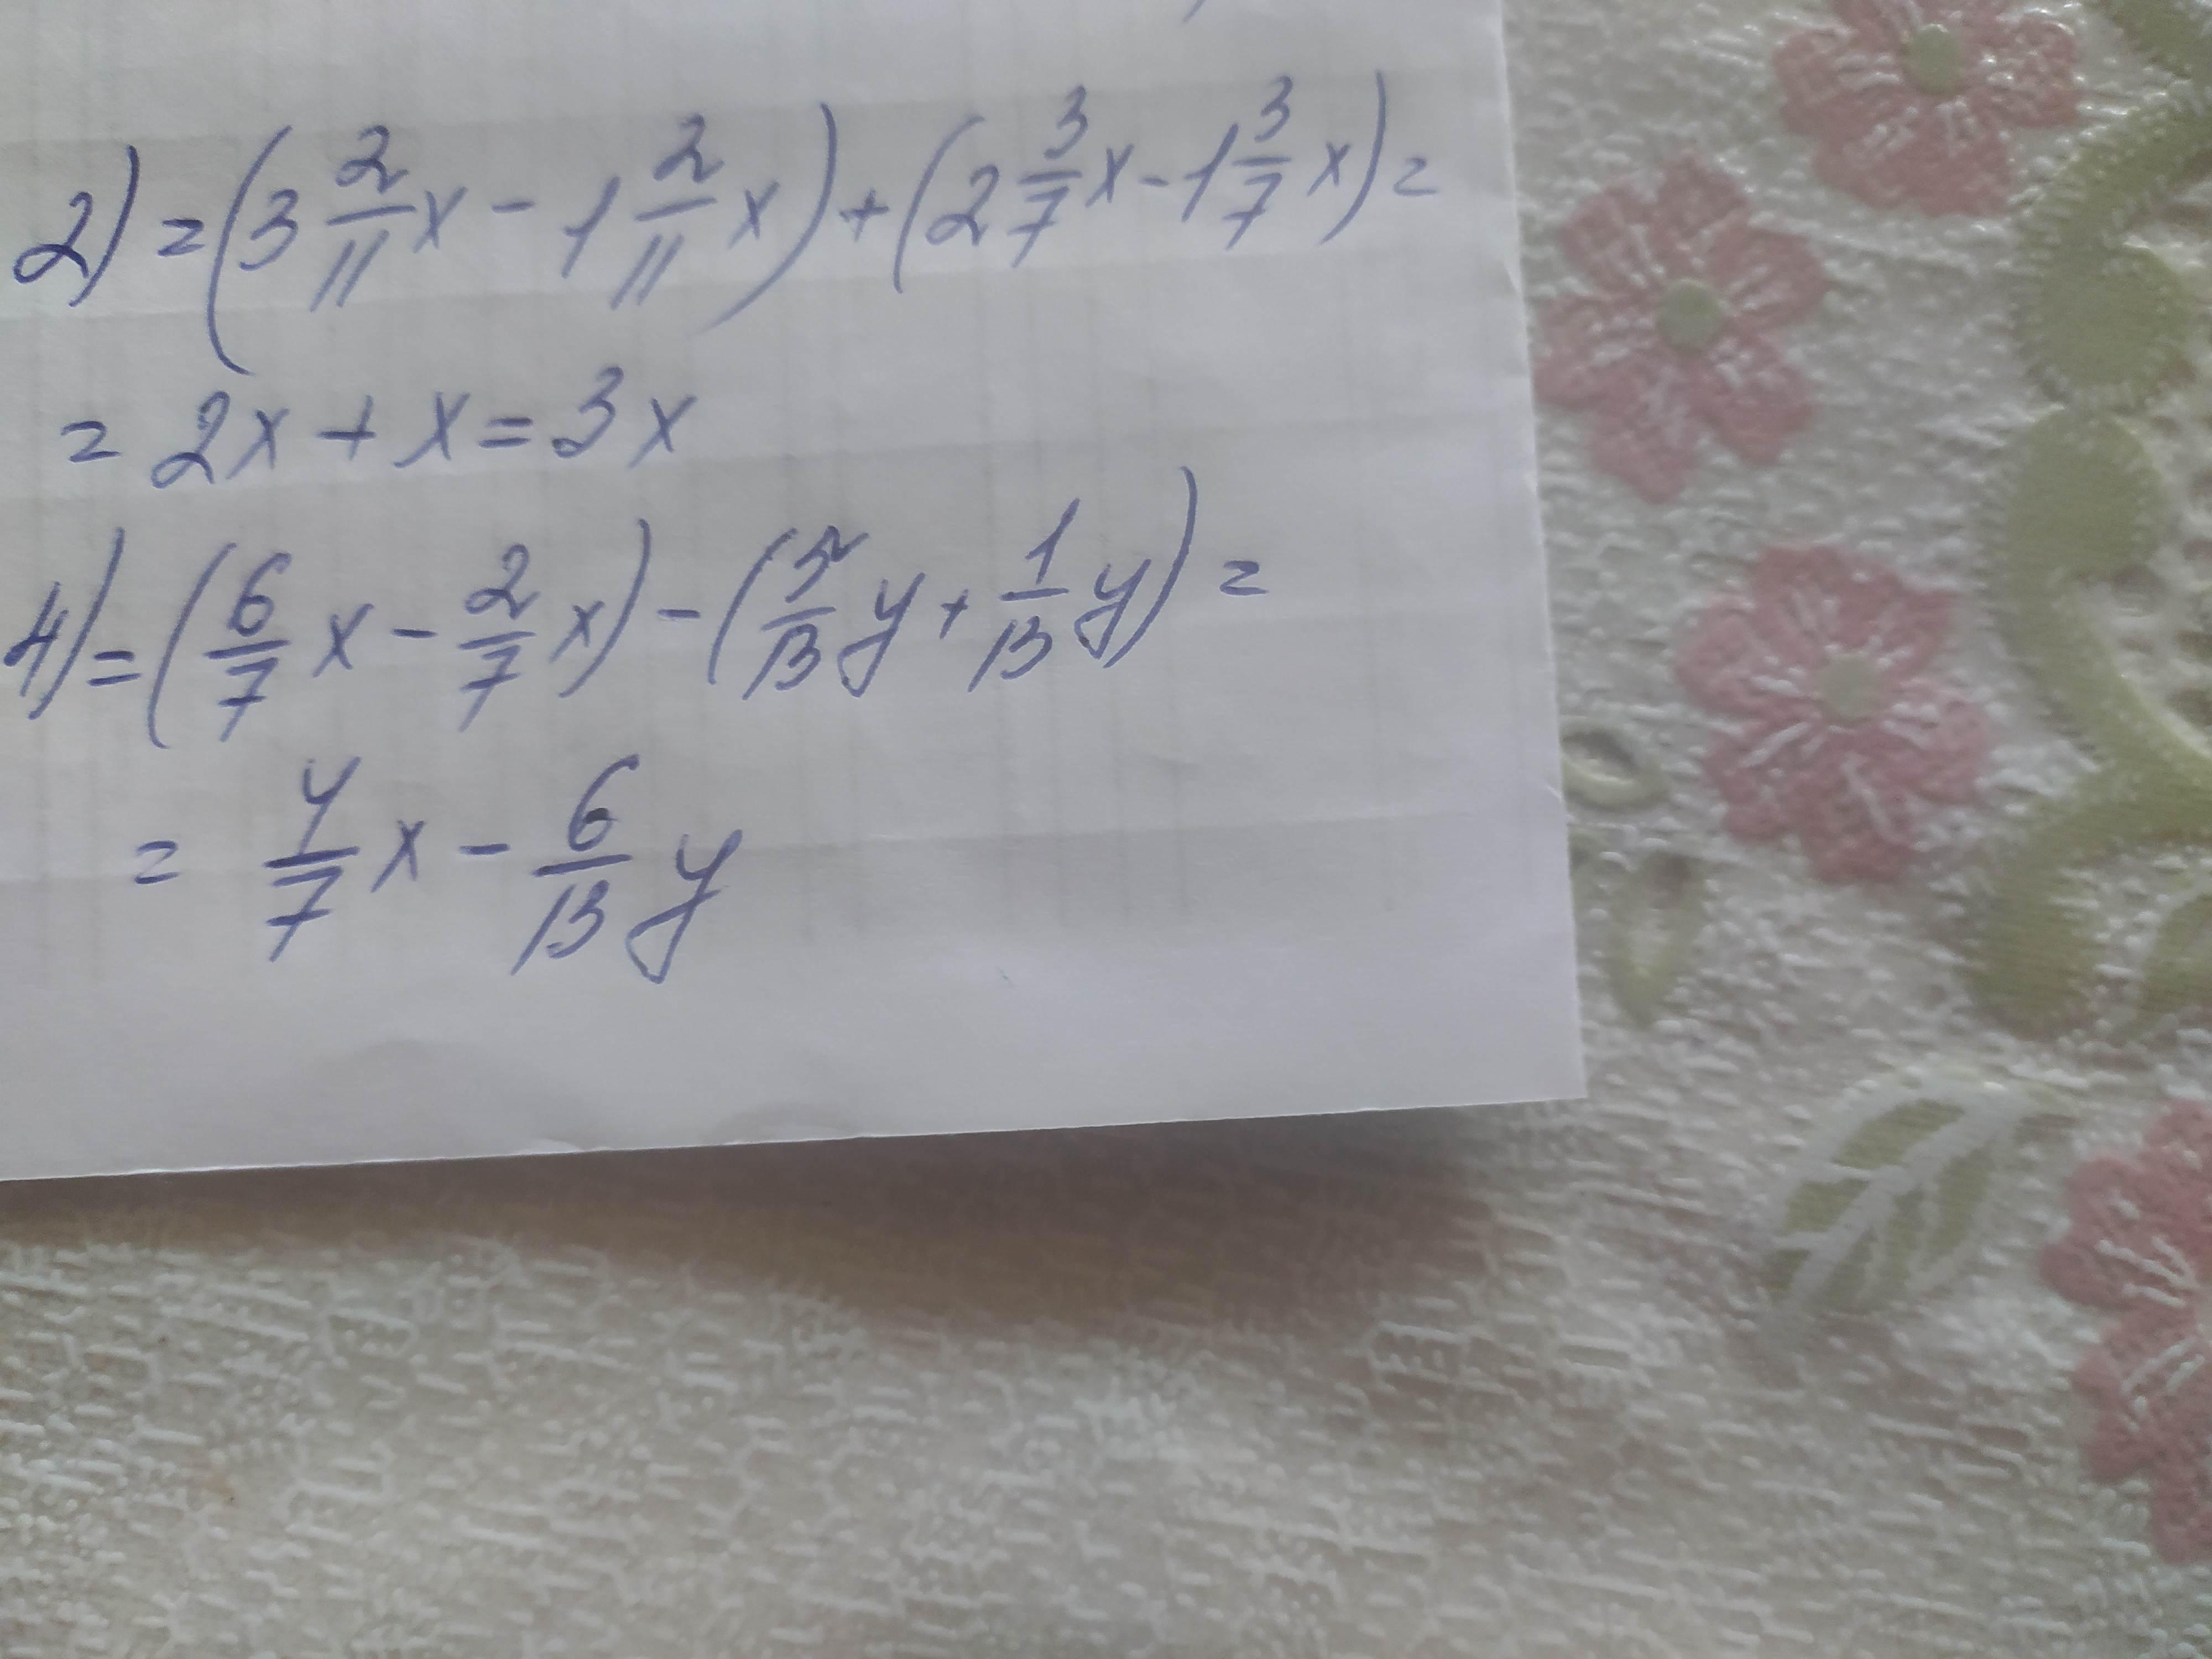 2) = (3 2/11 x - 1 2/11 x) + (2 3/7 x - 1 3/7 x) =
= 2x + x = 3x
4) = (6/7 x - 2/7 x) - (5/13 y + 1/13 y) =
= 4/7 x - 6/13 y